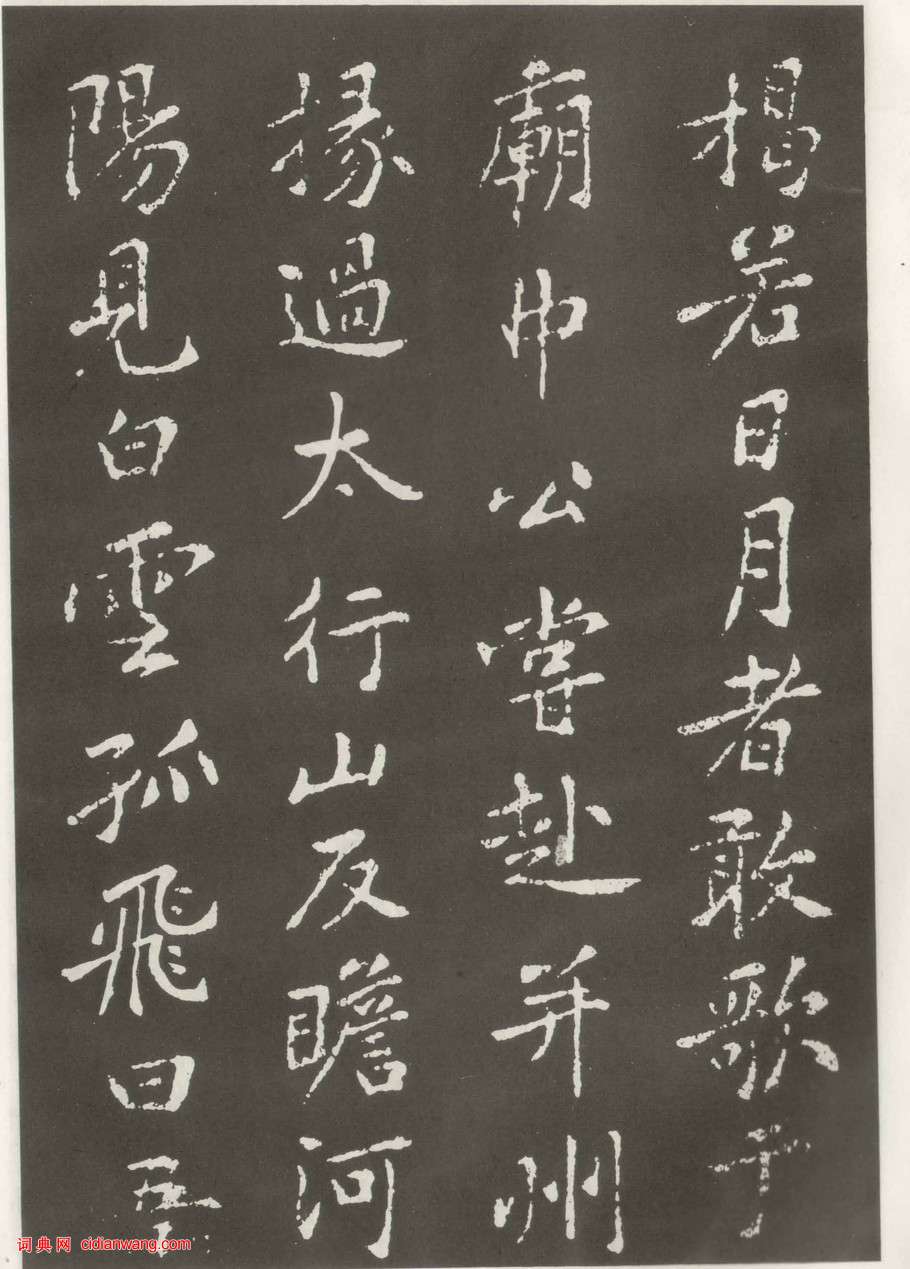 揭若日月者敢歌于
廟中公嘗赴并州
掾過太行山反瞻河
陽見白雲孤飛曰吾
词典网 cidianwang.com